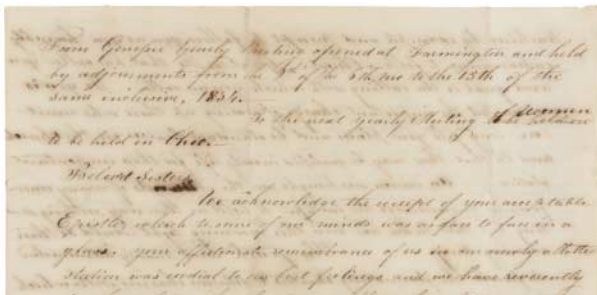 From Genesee Yearly Meeting opened at Farmington and held
by adjournments from the 9th of the 6th mo to the 13th of the
same inclusive, 1834.
To the next Yearly Meeting of Women
to be held in Ohio.
Beloved Sisters
We acknowledge the receipt of your acceptable
Epistle, which to some of our minds was as face to face in a
glass. your affectionate remembrance of us in our newly allotted
station was cordial to our best feelings and we have reverently